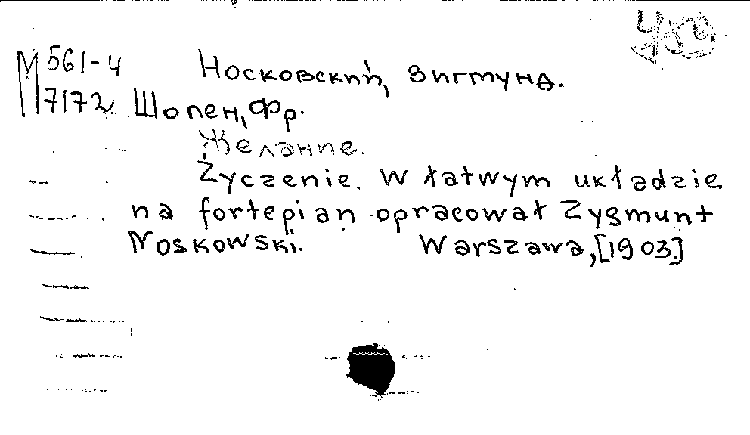 М 561-4 Носковский, Зигмунд.
7172 Шопен, Фр.
Желание.
Życzenie. W łatwym układzie
na fortepian opracował Zygmunt
Noskowski. Warszawa, [1903]